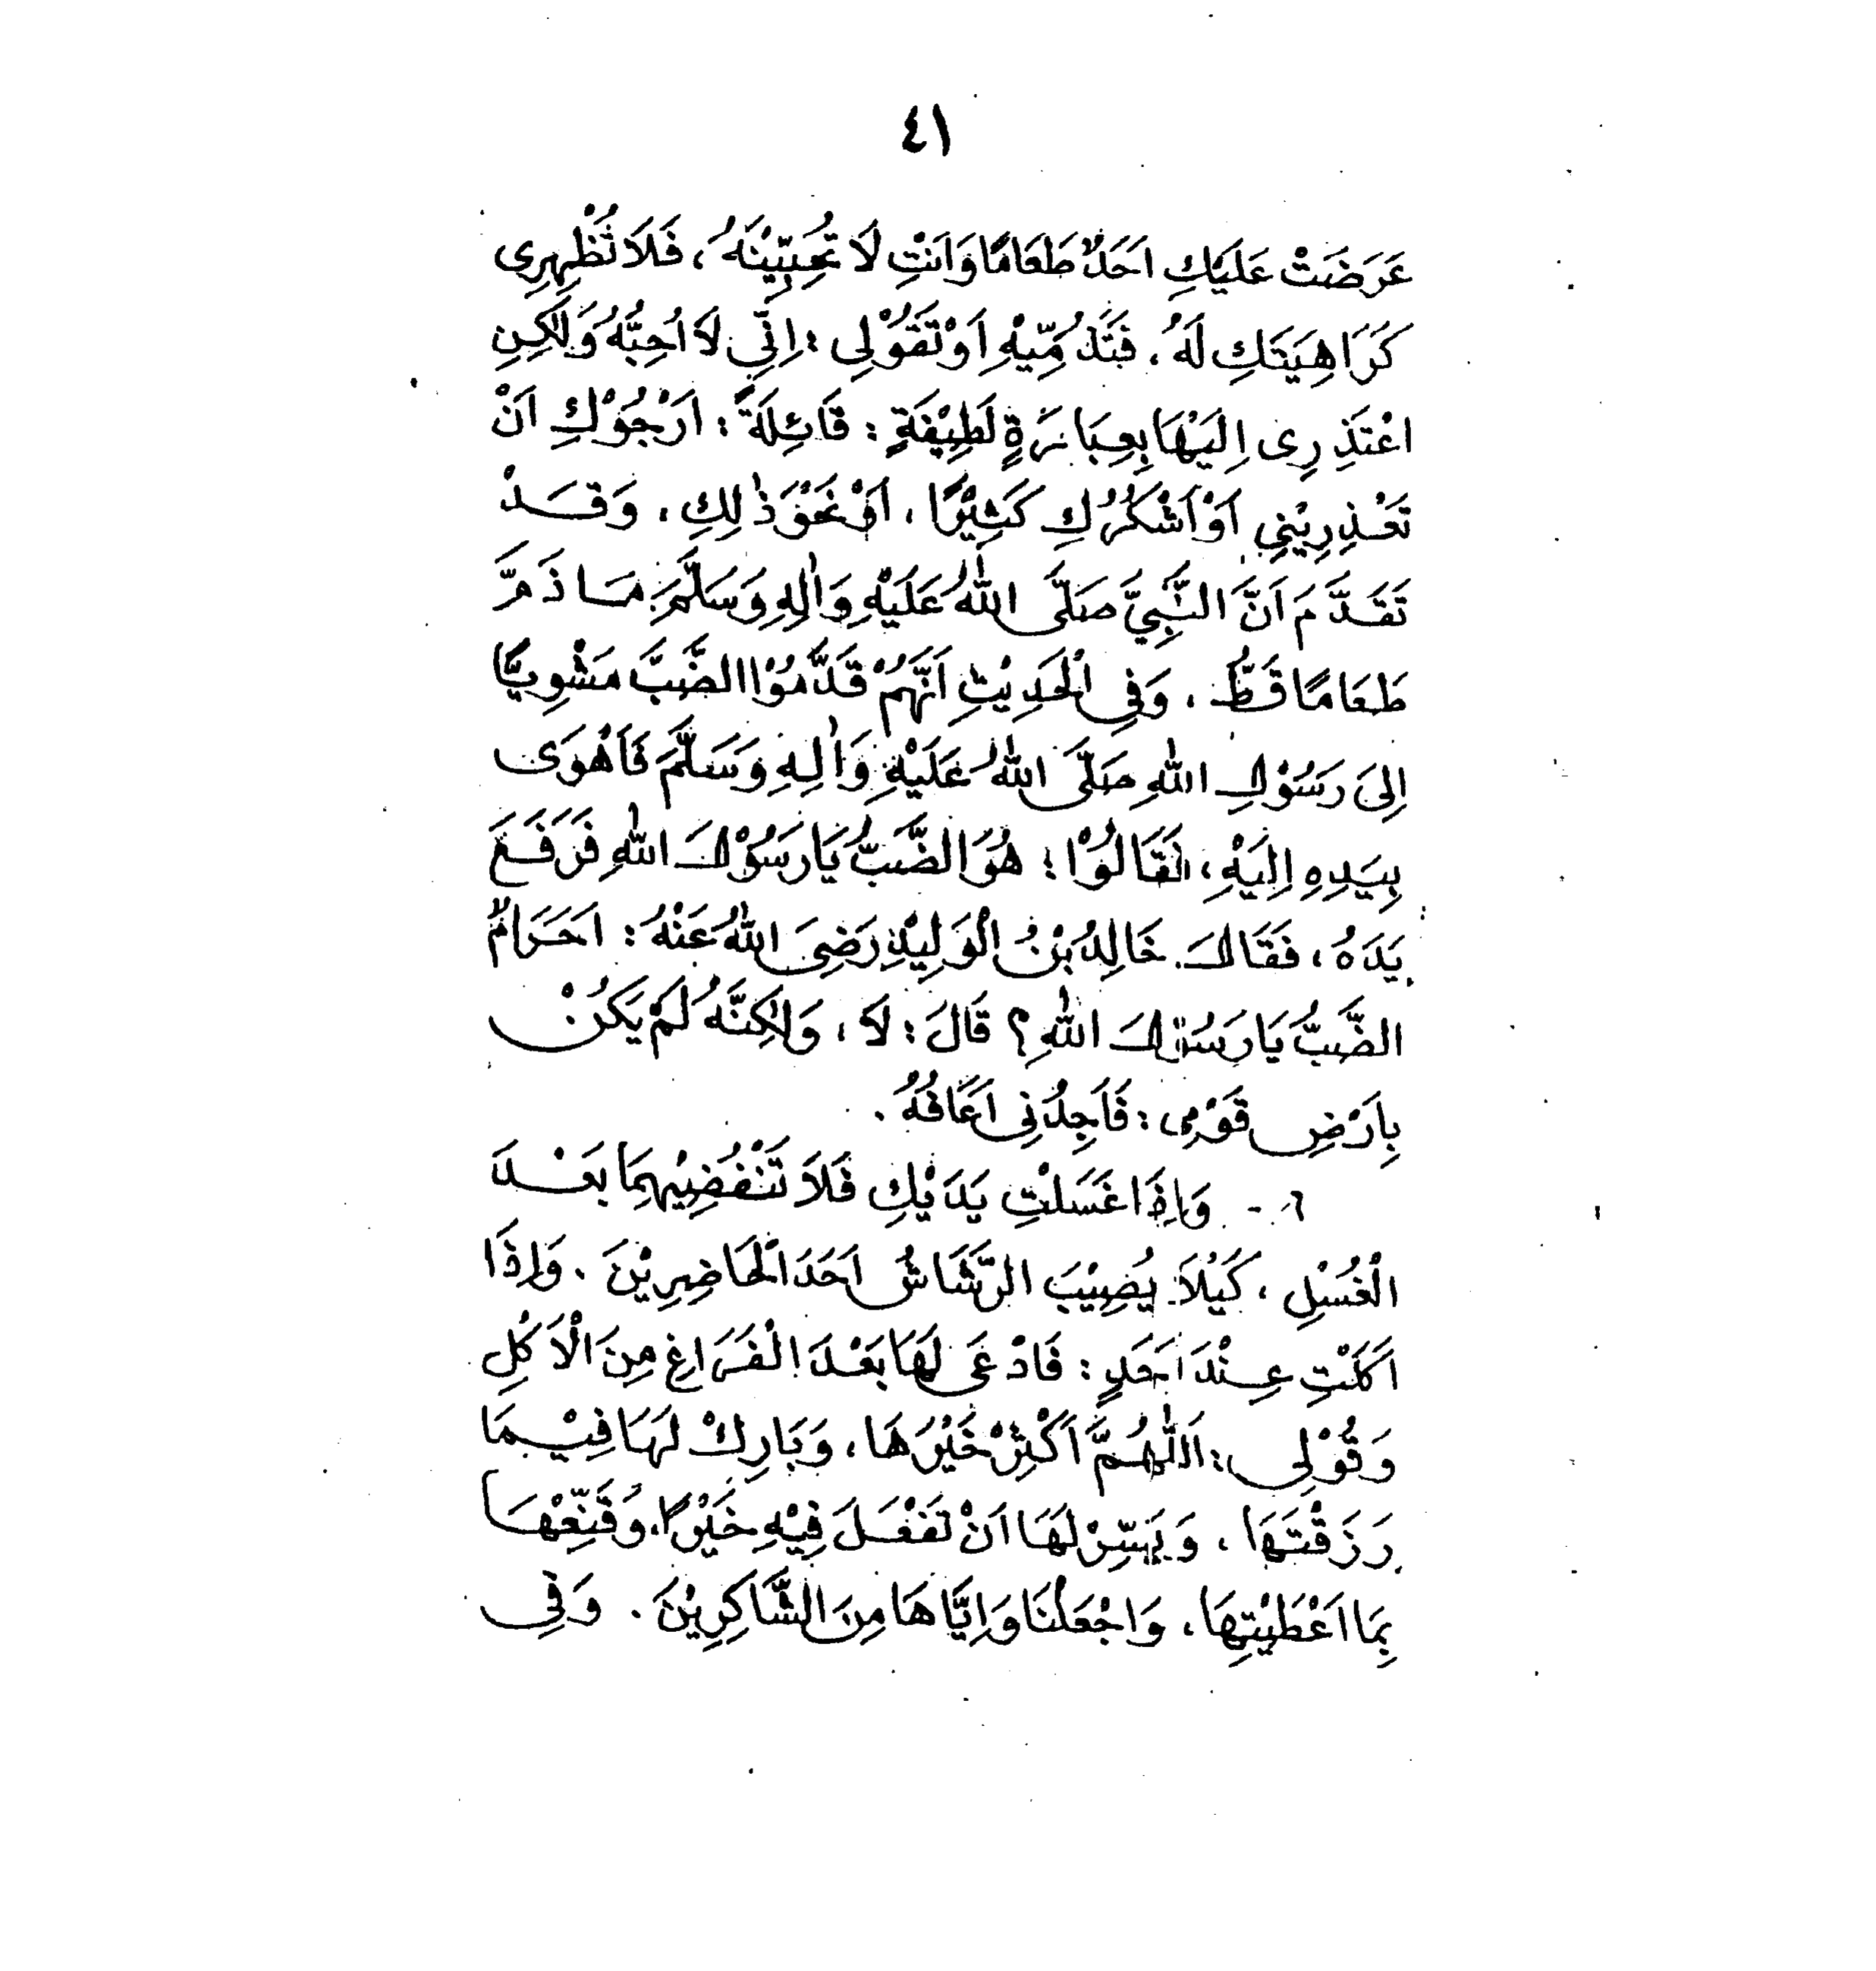 ٤١
عَرَضَتْ عَلَيْكِ اَحَدٌ طَعَامًا وَاَنْتِ لَا تُحِبِّيْنَهُ ، فَلَا تُظْهِرِى
كَرَاهِيَتَكِ لَهُ ، فَتَذُمِّيْهِ اَوْ تَقُوْلِى : اِنِّي لَا اُحِبُّهُ وَلٰكِنِ
اعْتَذِرِى اِلَيْهَا بِعِبَارَةٍ لَطِيْفَةٍ : قَائِلَةً : اَرْجُوْكِ اَنْ
تَعْذِرِيْنِي اَوْ اَشْكُرُكِ كَثِيْرًا ، اَوْ نَحْوَ ذٰلِكِ ، وَقَدْ
تَقَدَّمَ اَنَّ النَّبِيَّ صَلَّى اللّٰهُ عَلَيْهِ وَاٰلِهِ وَسَلَّمَ مَا ذَمَّ
طَعَامًا قَطُّ ، وَفِى الْحَدِيْثِ اَنَّهُمْ قَدَّمُوْا الضَّبَّ مَشْوِيًّا
اِلىَ رَسُوْلِ اللّٰهِ صَلَّى اللّٰهُ عَلَيْهِ وَاٰلِهِ وَسَلَّمَ فَاَهْوَى
بِيَدِهِ اِلَيْهِ ، فَقَالُوْا : هُوَ الضَّبُّ يَا رَسُوْلَ اللّٰهِ فَرَفَعَ
يَدَهُ ، فَقَالَ خَالِدُ بْنُ الْوَلِيْدِ رَضِىَ اللّٰهُ عَنْهُ : اَحَرَامٌ
الضَّبُّ يَا رَسُوْلَ اللّٰهِ ؟ قَالَ : لَا ، وَلٰكِنَّهُ لَمْ يَكُنْ
بِاَرْضِ قَوْمِى : فَاَجِدُنِى اَعَافُهُ .
٦ - وَاِذَا غَسَلْتِ يَدَيْكِ فَلَا تَنْفُضِيْهِمَا بَعْدَ
الْغُسْلِ ، كَيْلَا يُصِيْبَ الرَّشَاشُ اَحَدَ الْحَاضِرِيْنَ . وَاِذَا
اَكَلْتِ عِنْدَ اَحَدٍ : فَادْعَى لَهَا بَعْدَ الْفَرَاغِ مِنَ الْاَكْلِ
وَقُوْلِى : اَللّٰهُمَّ اَكْثِرْ خَيْرَهَا ، وَبَارِكْ لَهَا فِيْمَا
رَزَقْتَهَا ، وَيَسِّرْ لَهَا اَنْ تَفْعَلَ فِيْهِ خَيْرًا ، وَقَنِّعْهَا
بِمَا اَعْطَيْتِهَا ، وَاجْعَلْنَا وَاِيَّاهَا مِنَ الشَّاكِرِيْنَ . وَفِى